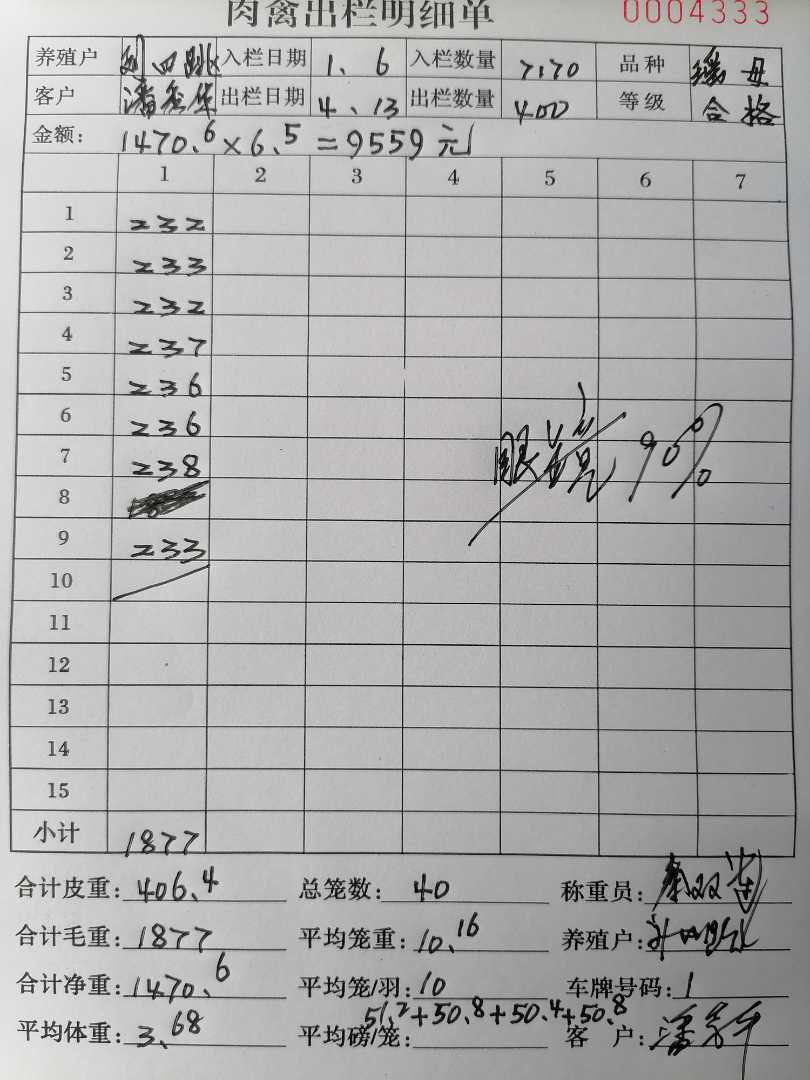 肉禽出栏明细单 0004333
养殖户 刘四跳 入栏日期 1、6 入栏数量 7170 品种 母
客户 潘秀华 出栏日期 4、13 出栏数量 400 等级 合格
金额: 1470.6×6.5=9559元
1 2 3 4 5 6 7
1 232
2 233
3 232
4 237
5 236
6 236
7 238
眼差 90%
8
9 233
10
11
12
13
14
15
小计 1877
合计皮重: 406.4 总笼数: 40 称重员:
合计毛重: 1877 平均笼重: 10.16 养殖户:
合计净重: 1470.6 平均笼/羽: 10 车牌号码: 1
51.2+50.8+50.4+50.8
平均体重: 3.68 平均磅/笼: 客户: 潘秀华